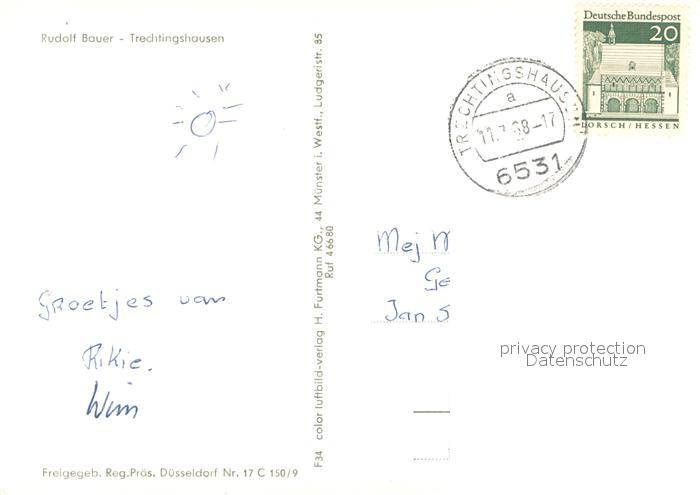 Rudolf Bauer - Trechtingshausen
Deutsche Bundespost
20
LORSCH/HESSEN
TRECHTINGSHAUSEN
a
11.7.68-17
6531
Groetjes van
Rikie.
Wim
Mej
Jan S
F34 color luftbild-verlag H. Furtmann KG., 44 Münster i. Westf., Ludgeristr. 85
Ruf 46680
Freigegeb. Reg.Präs. Düsseldorf Nr. 17 C 150/9
privacy protection
Datenschutz